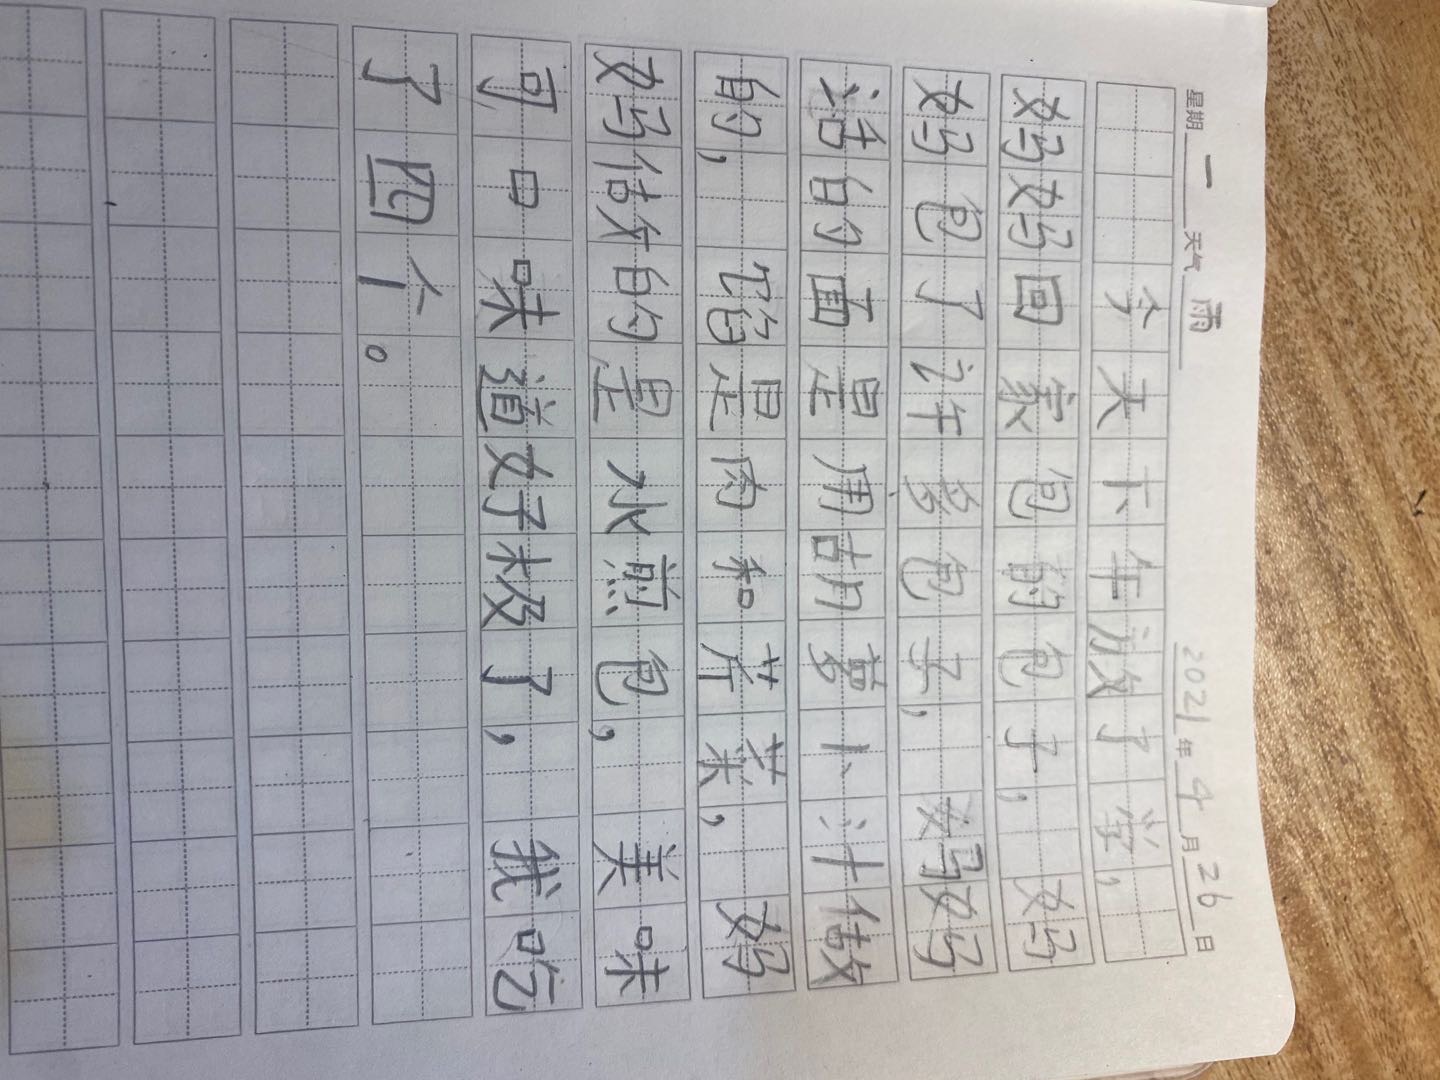 星期一 天气 雨 2021年4月26日
今天下午放了学，
妈妈回家包的包子，妈
妈包了许多包子，妈妈
活的面是用胡萝卜汁做
的，馅是肉和芹菜，妈
妈做的是水煎包，美味
可口味道好极了，我吃
了四个。